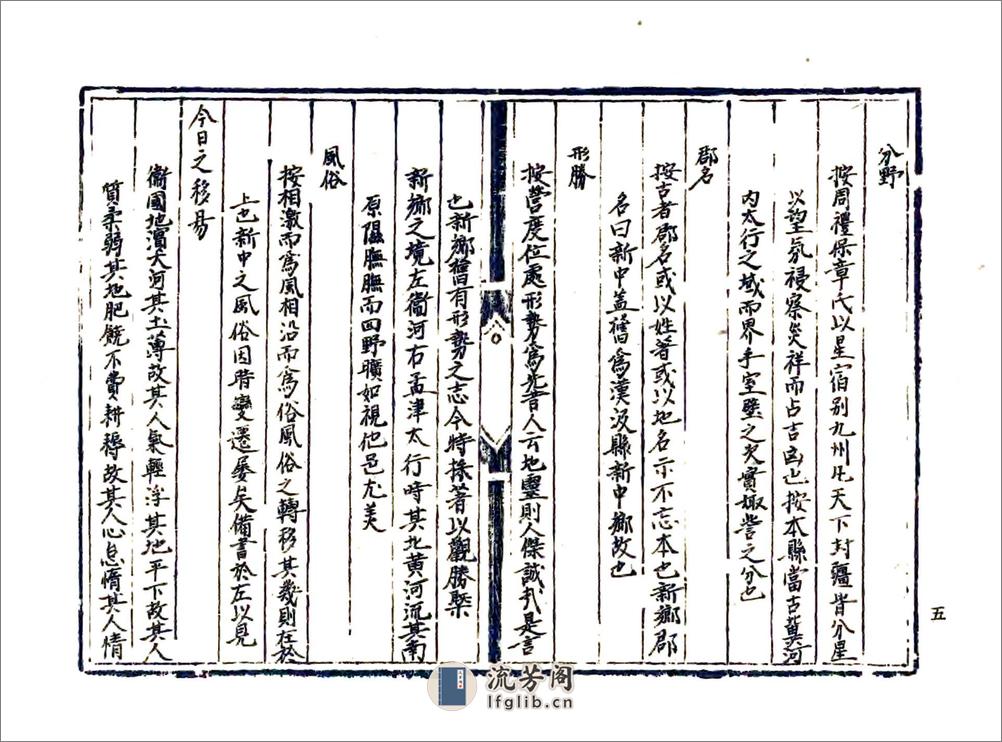 分野
按周禮保章氏以星宿别九州凡天下封疆皆分星
以望氛祲察災祥而占吉凶也按本縣當古冀河
内太行之域而界乎室壁之次實娵訾之分也
郡名
按古者郡名或以姓著或以地名示不忘本也新鄉郡
名曰新中盖舊爲漢汲縣新中鄉故也
形勝
按營度位處形勢爲先昔人云地靈則人傑誠㢤是言
也新鄉舊有形勢之志今特採著以觀勝槩
新鄉之境左衞河右孟津太行峙其北黄河流其南
原隰膴膴而四野曠如視他邑尤美
風俗
按相激而爲風相沿而爲俗風俗之轉移其幾則在於
上也新中之風俗因時變遷屡矣備書於左以見
今日之移易
衞國地濵大河其土薄故其人氣輕浮其地平下故其人
質柔弱其地肥饒不費耕耨故其人心怠惰其人情
五
流芳阁
lfglib.cn